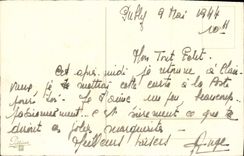 Pully 9 Mai 1944
10 H
Mon Tout Petit.
Cet après-midi je
je mettrai cette carte à la Poste
pour toi. Je t'aime un peu, beaucoup,
passionnément... c'est sûrement ce que
diront les jolies marguerites.
Meilleurs baisers